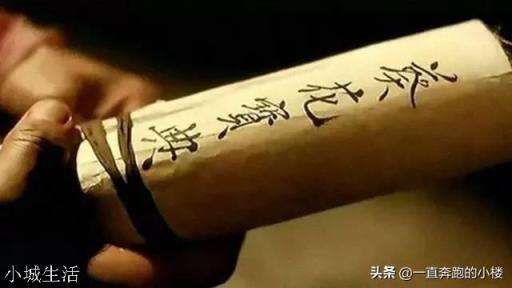 葵花寶典
小城生活
头条 @一直奔跑的小楼